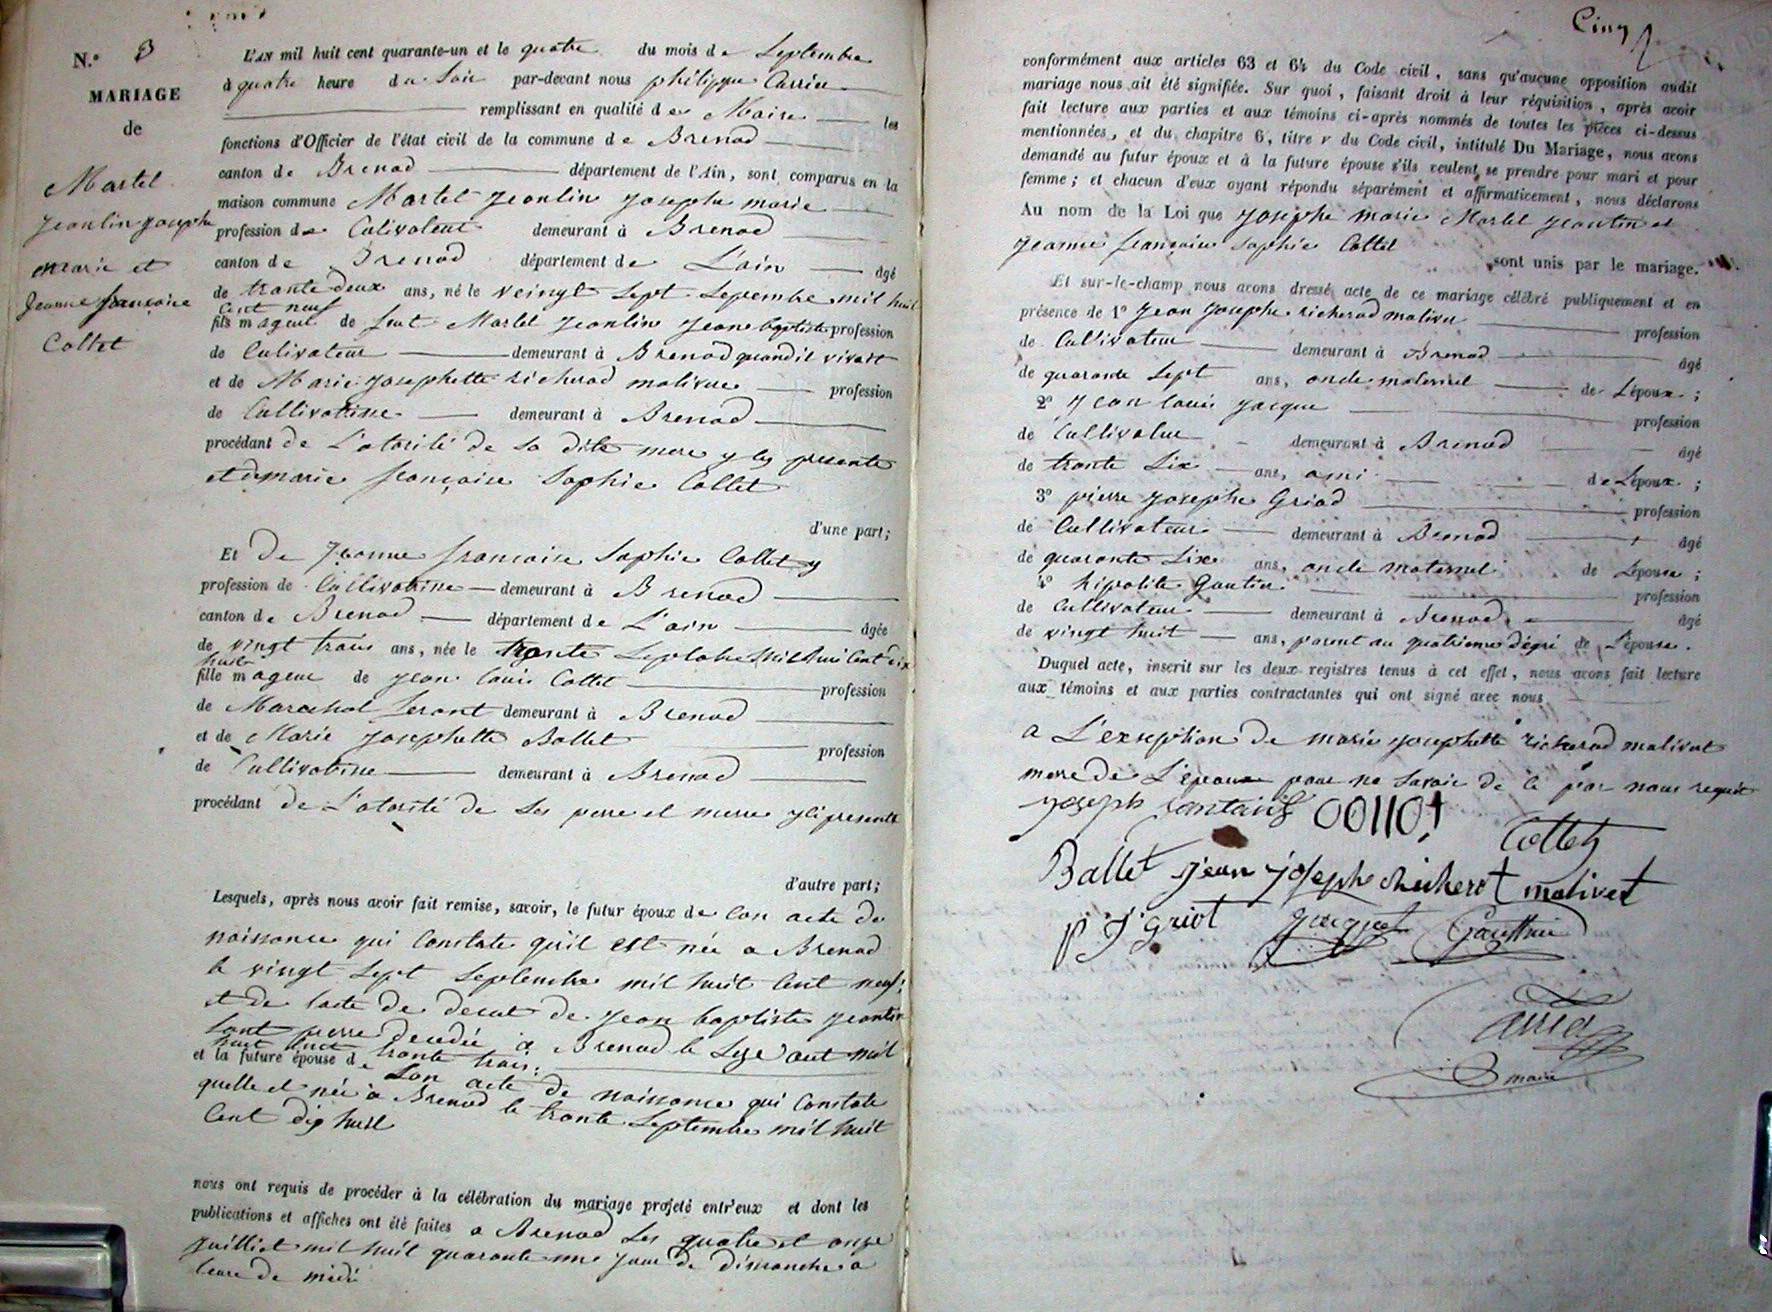 N.° 3
MARIAGE
de
Martel
Jeanlin Josephe
marie et
Jeanne francoise
Collet
L'AN mil huit cent quarante-un et le quatre du mois de Septembre
à quatre heure du Soir par-devant nous philippe Carrier
remplissant en qualité de Maire les
fonctions d'Officier de l'état civil de la commune de Brenod
canton de Brenod département de l'Ain, sont comparus en la
maison commune Martel Jeanlin Josephe marie
profession de Culivateur demeurant à Brenod
canton de Brenod département de L'ain âgé
de trante deux ans, né le veingt Sept Sepembre mil huit
Cent neuf
fils mageur de feut Martel Jeanlin Jean baptiste profession
de Culivateur demeurant à Brenod quand il vivait
et de Marie Josephette richerod malivue profession
de Cultivatrise demeurant à Brenod
procédant de L'atorité de sa dite mere y les presente
et de marie françoise Sophie Collet
d'une part;
Et De Jeanne francoise Sophie Collet y
profession de Cultivatrise demeurant à Brenod
canton de Brenod département de L'ain âgée
de vingt trais ans, née le trante Septabre Mil huit Cent dix
huit
fille mageur de Jean louis Collet profession
de Marachal ferant demeurant à Brenod
et de Marie Josephette Ballet profession
de Cultivatrise demeurant à Brenod
procédant de L'atorité de Ses perre et merre y ci presents
d'autre part;
Lesquels, après nous avoir fait remise, savoir, le futur époux de Son acte de
naissance qui Constate qu'il est née a Brenod
le vingt Sept Septembre mil huit Cent neuf;
et de lacte de decet de Jean baptiste Jeanlin
Sont perre decedée à Brenod le Seze out mil
huit Cent trante trais;
et la future épouse de Son acte de naissance qui Constate
quelle et née à Brenod le trante Septembre mil huit
Cent dix huit
nous ont requis de procéder à la célébration du mariage projeté entr'eux et dont les
publications et affiches ont été faites a Brenod Les quatre et onze
Juilliet mil huit quarante une Jour de dimanche a
leure de midi
Cinq
conformément aux articles 63 et 64 du Code civil, sans qu'aucune opposition audit
mariage nous ait été signifiée. Sur quoi, faisant droit à leur réquisition, après avoir
fait lecture aux parties et aux témoins ci-après nommés de toutes les pièces ci-dessus
mentionnées, et du chapitre 6, titre v du Code civil, intitulé Du Mariage, nous avons
demandé au futur époux et à la future épouse s'ils veulent se prendre pour mari et pour
femme; et chacun d'eux ayant répondu séparément et affirmativement, nous déclarons
Au nom de la Loi que Josephe marie Martel Jeanlin et
Jeanne françoise Sophie Collet
sont unis par le mariage.
Et sur-le-champ nous avons dressé acte de ce mariage célébré publiquement et en
présence de 1° Jean Josephe richerod malivu profession
de Cultivateur demeurant à Brenod âgé
de quarante Sept ans, oncle maternel de Lépoux;
2° Jean louis Jacque profession
de Cultivateur demeurant à Brenod âgé
de trante Six ans, ami de Lépoux;
3° pierre Josephe Griod profession
de Cultivateur demeurant à Brenod âgé
de quarante Six ans, oncle maternel de Lépouse;
4° hipolite Gautier profession
de Cultivateur demeurant à Brenod âgé
de vingt huit ans, parent au quatrieme dégré de Lépouse.
Duquel acte, inscrit sur les deux registres tenus à cet effet, nous avons fait lecture
aux témoins et aux parties contractantes qui ont signé avec nous
a L'exseption de marie Josephette richerod malivat
mere de L'epoux pour ne Savoir de ce par nous requit
Joseph Collet
Collet
Ballet Jean Joseph richerot malivert
p J griot Jacquet Gautier
Carrier
maire